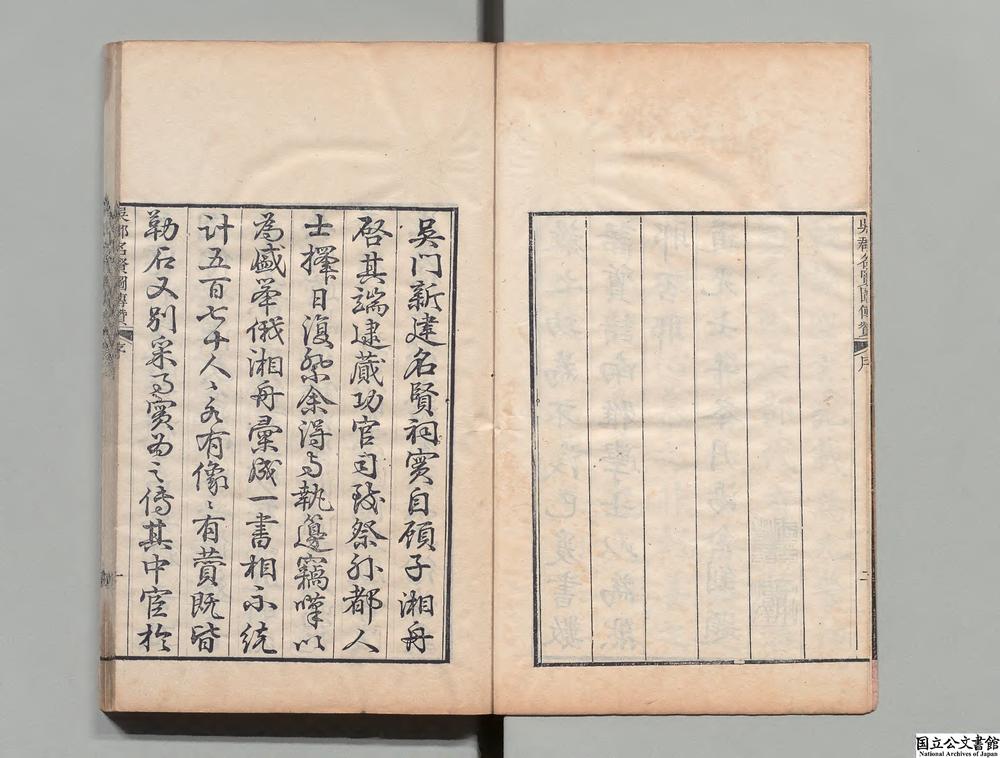 吳郡名賢圖傳贊 序 二
吳门新建名賢祠實自顧子湘舟
啓其端逮蕆功官司致祭外都人
士擇日復祭余得与執籩竊嘆以
為盛举俄湘舟彙成一書相示統
计五百七十人〻各有像〻有贊既皆
勒石又别采事實為之傳其中宦於
吳郡名賢圖傳贊 序 一
国立公文書館
National Archives of Japan